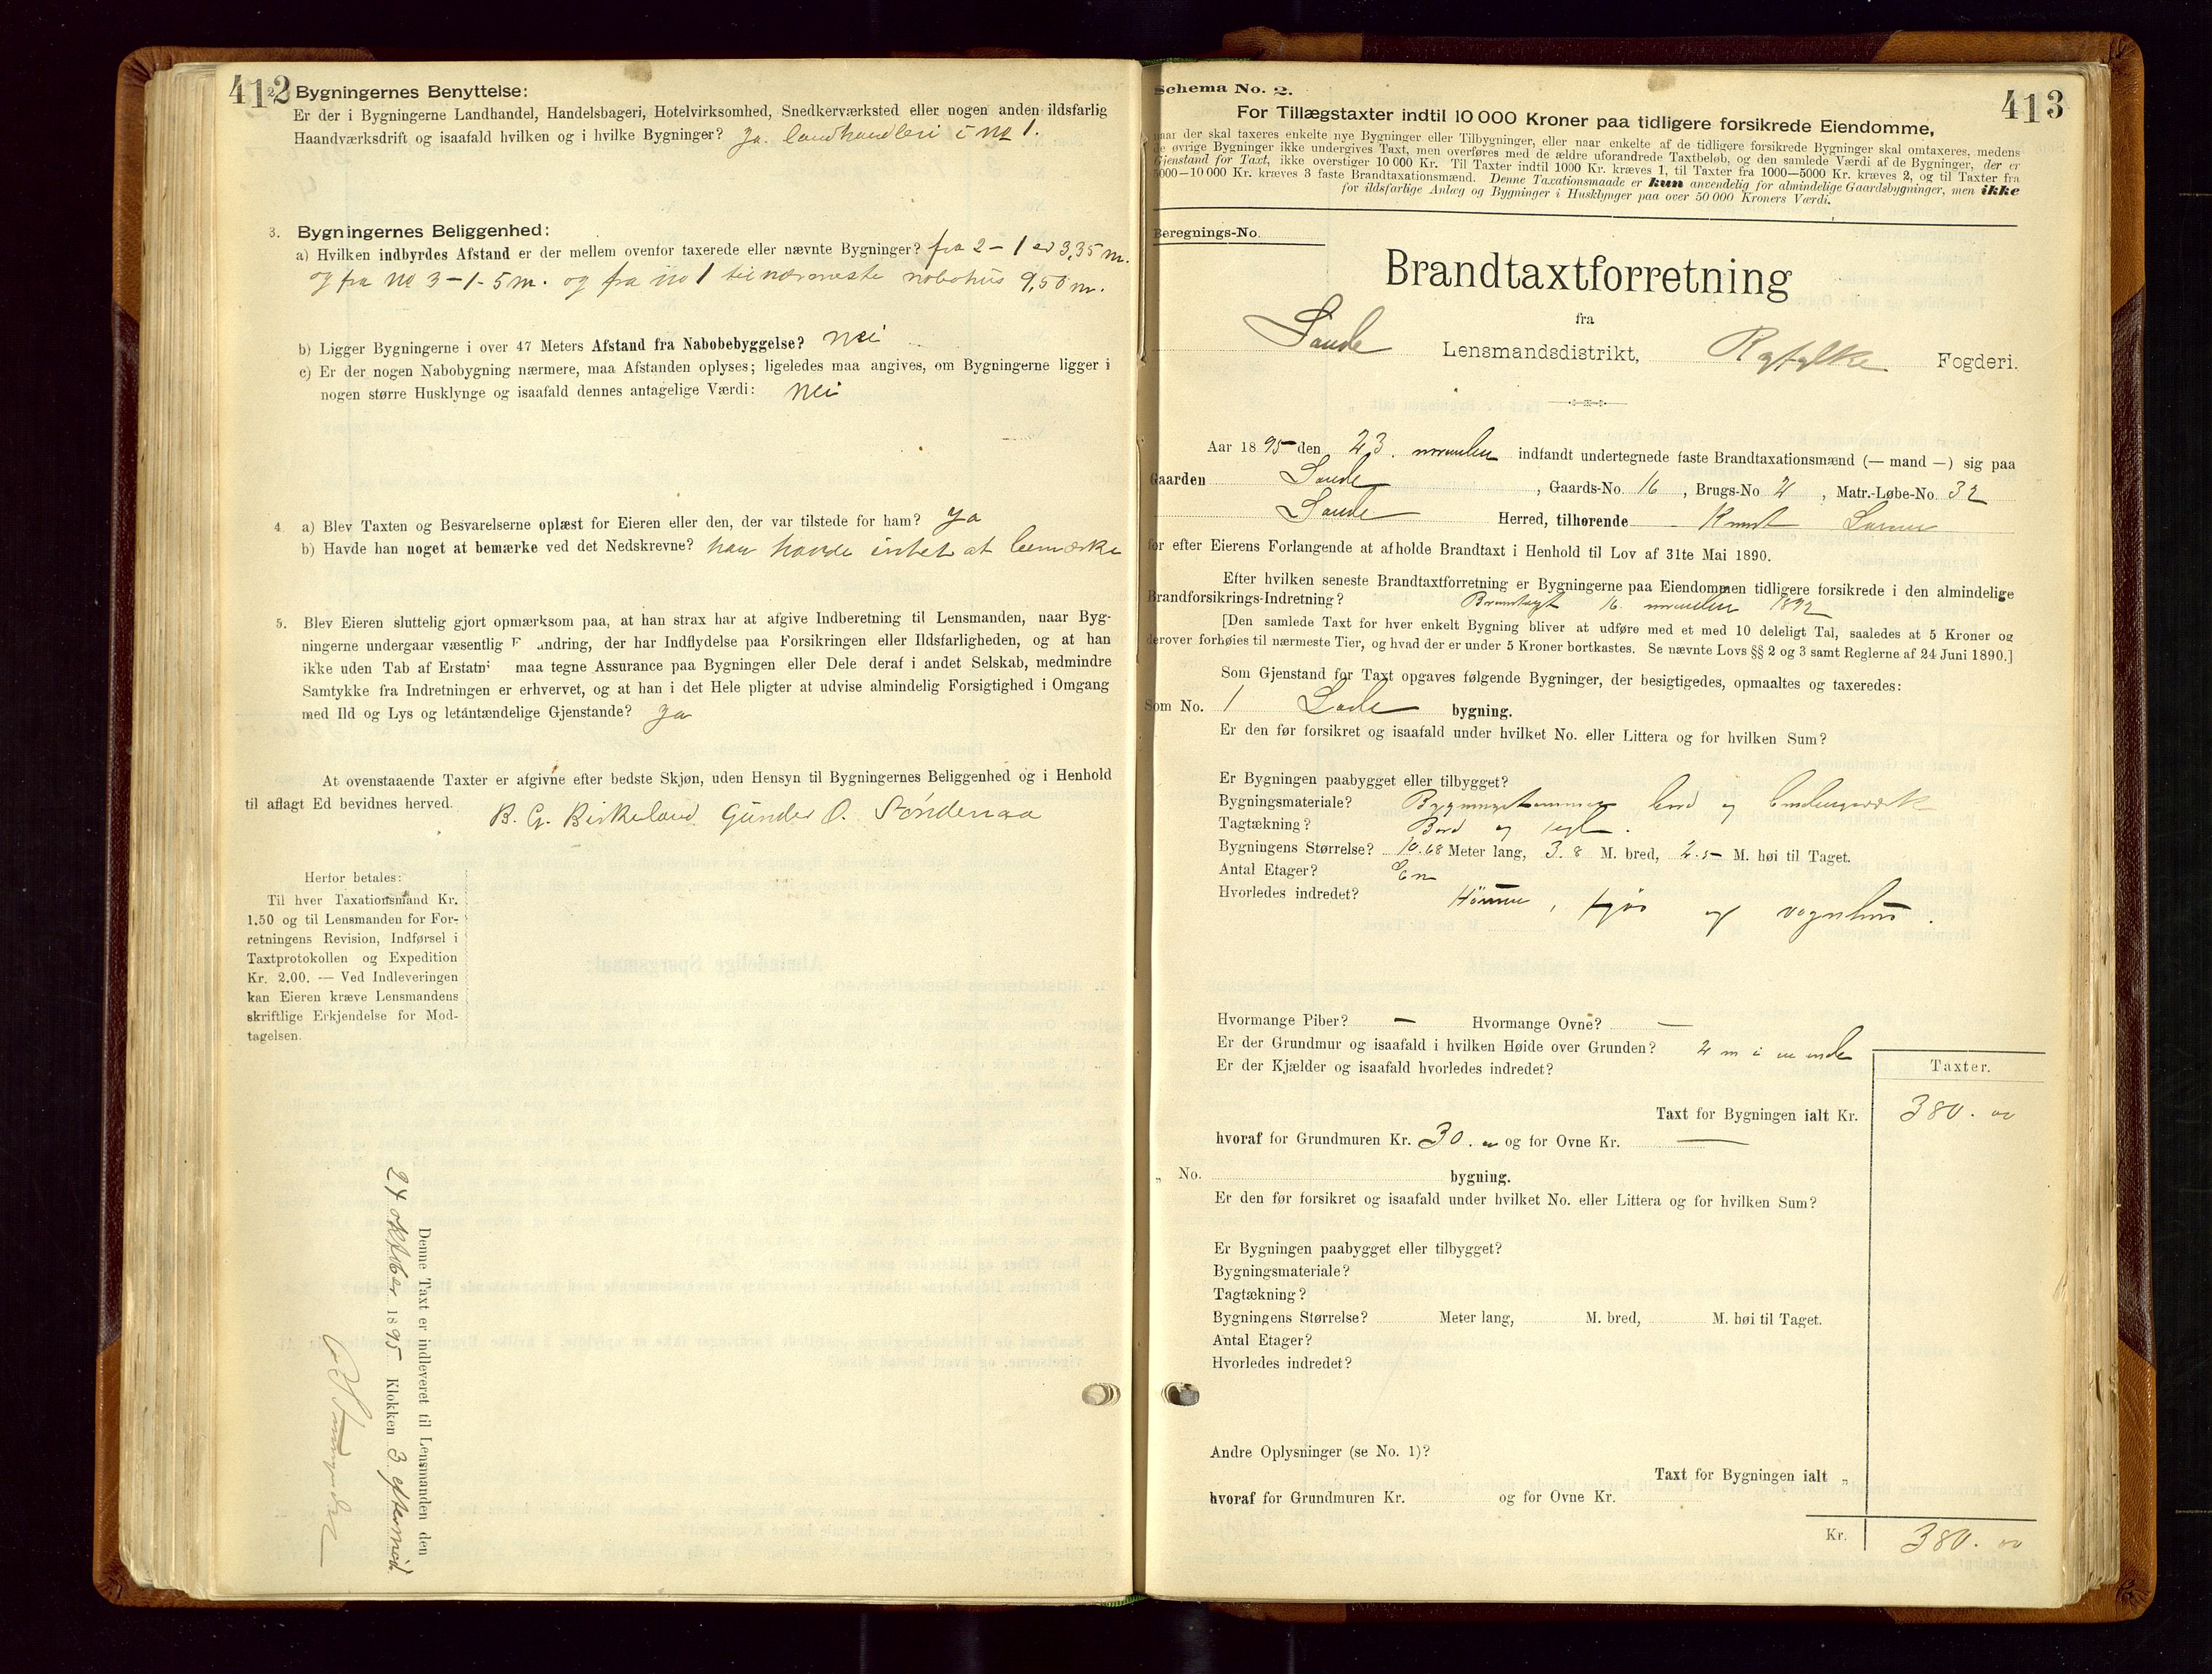 412
2. Bygningernes Benyttelse:
Er der i Bygningerne Landhandel, Handelsbageri, Hotelvirksomhed, Snedkerværksted eller nogen anden ildsfarlig
Haandværksdrift og isaafald hvilken og i hvilke Bygninger? Ja. landhandleri i no 1.
3. Bygningernes Beliggenhed:
a) Hvilken indbyrdes Afstand er der mellem ovenfor taxerede eller nævnte Bygninger? fra 2 - 1 er 3,35 m.
og fra no 3 - 1 - 5 m. og fra no 1 til nærmeste nabohus 9,50 m.
b) Ligger Bygningerne i over 47 Meters Afstand fra Nabobebyggelse? nei
c) Er der nogen Nabobygning nærmere, maa Afstanden oplyses; ligeledes maa angives, om Bygningerne ligger i
nogen større Husklynge og isaafald dennes antagelige Værdi: nei
4. a) Blev Taxten og Besvarelserne oplæst for Eieren eller den, der var tilstede for ham? ja
b) Havde han noget at bemærke ved det Nedskrevne? han havde intet at bemærke
5. Blev Eieren sluttelig gjort opmærksom paa, at han strax har at afgive Indberetning til Lensmanden, naar Byg-
ningerne undergaar væsentlig F andring, der har Indflydelse paa Forsikringen eller Ildsfarligheden, og at han
ikke uden Tab af Erstatn maa tegne Assurance paa Bygningen eller Dele deraf i andet Selskab, medmindre
Samtykke fra Indretningen er erhvervet, og at han i det Hele pligter at udvise almindelig Forsigtighed i Omgang
med Ild og Lys og letantændelige Gjenstande? ja
At ovenstaaende Taxter er afgivne efter bedste Skjøn, uden Hensyn til Bygningernes Beliggenhed og i Henhold
til aflagt Ed bevidnes herved.
B. G. Birkeland Gunder O. Söndenaa
Herfor betales:
Til hver Taxationsmand Kr.
1.50 og til Lensmanden for For-
retningens Revision, Indførsel i
Taxtprotokollen og Expedition
Kr. 2.00. — Ved Indleveringen
kan Eieren kræve Lensmandens
skriftlige Erkjendelse for Mod-
tagelsen.
Denne Taxt er indleveret til Lensmanden den
24 oktober 1895 Klokken 3 eftermid
413
Schema No. 2.
For Tillægstaxter indtil 10 000 Kroner paa tidligere forsikrede Eiendomme,
naar der skal taxeres enkelte nye Bygninger eller Tilbygninger, eller naar enkelte af de tidligere forsikrede Bygninger skal omtaxeres, medens
de øvrige Bygninger ikke undergives Taxt, men overføres med de ældre uforandrede Taxtbeløb, og den samlede Værdi af de Bygninger, der er
Gjenstand for Taxt, ikke overstiger 10 000 Kr. Til Taxter indtil 1000 Kr. kræves 1, til Taxter fra 1000—5000 Kr. kræves 2, og til Taxter fra
5000—10 000 Kr. kræves 3 faste Brandtaxationsmænd. Denne Taxationsmaade er kun anvendelig for almindelige Gaardsbygninger, men ikke
for ildsfarlige Anlæg og Bygninger i Husklynger paa over 50 000 Kroners Værdi.
Beregnings-No.
Brandtaxtforretning
fra
Sande Lensmandsdistrikt, Ryfylke Fogderi.
Aar 1895 den 23. november indfandt undertegnede faste Brandtaxationsmænd (— mand —) sig paa
Gaarden Sande, Gaards-No. 16, Brugs-No 2, Matr.-Løbe-No. 32
Sande Herred, tilhørende Knut Larsen
for efter Eierens Forlangende at afholde Brandtaxt i Henhold til Lov af 31te Mai 1890.
Efter hvilken seneste Brandtaxtforretning er Bygningerne paa Eiendommen tidligere forsikrede i den almindelige
Brandforsikrings-Indretning? Brandtagt 16. november 1892
[Den samlede Taxt for hver enkelt Bygning bliver at udføre med et med 10 deleligt Tal, saaledes at 5 Kroner og
derover forhøies til nærmeste Tier, og hvad der er under 5 Kroner bortkastes. Se nævnte Lovs §§ 2 og 3 samt Reglerne af 24 Juni 1890.]
Som Gjenstand for Taxt opgaves følgende Bygninger, der besigtigedes, opmaaltes og taxeredes:
Som No. 1 Lade bygning.
Er den før forsikret og isaafald under hvilket No. eller Littera og for hvilken Sum?
Er Bygningen paabygget eller tilbygget?
Bygningsmateriale? Bygningstømmer bord og bindingsværk
Tagtækning? Bord og tegl.
Bygningens Størrelse? 10.68 Meter lang, 3.8 M. bred, 2.5 M. høi til Taget.
Antal Etager? En
Hvorledes indredet? og vognhus.
Hvormange Piber? — Hvormange Ovne? —
Er der Grundmur og isaafald i hvilken Høide over Grunden? 2 m i en ende
Er der Kjælder og isaafald hvorledes indredet?
Taxter.
Taxt for Bygningen ialt Kr. 380. 00
hvoraf for Grundmuren Kr. 30. 00 og for Ovne Kr. —
„ No. bygning.
Er den før forsikret og isaafald under hvilket No. eller Littera og for hvilken Sum?
Er Bygningen paabygget eller tilbygget?
Bygningsmateriale?
Tagtækning?
Bygningens Størrelse? Meter lang, M. bred, M. høi til Taget.
Antal Etager?
Hvorledes indredet?
Andre Oplysninger (se No. 1)?
Taxt for Bygningen ialt „
hvoraf for Grundmuren Kr. og for Ovne Kr.
Kr. 380. 00